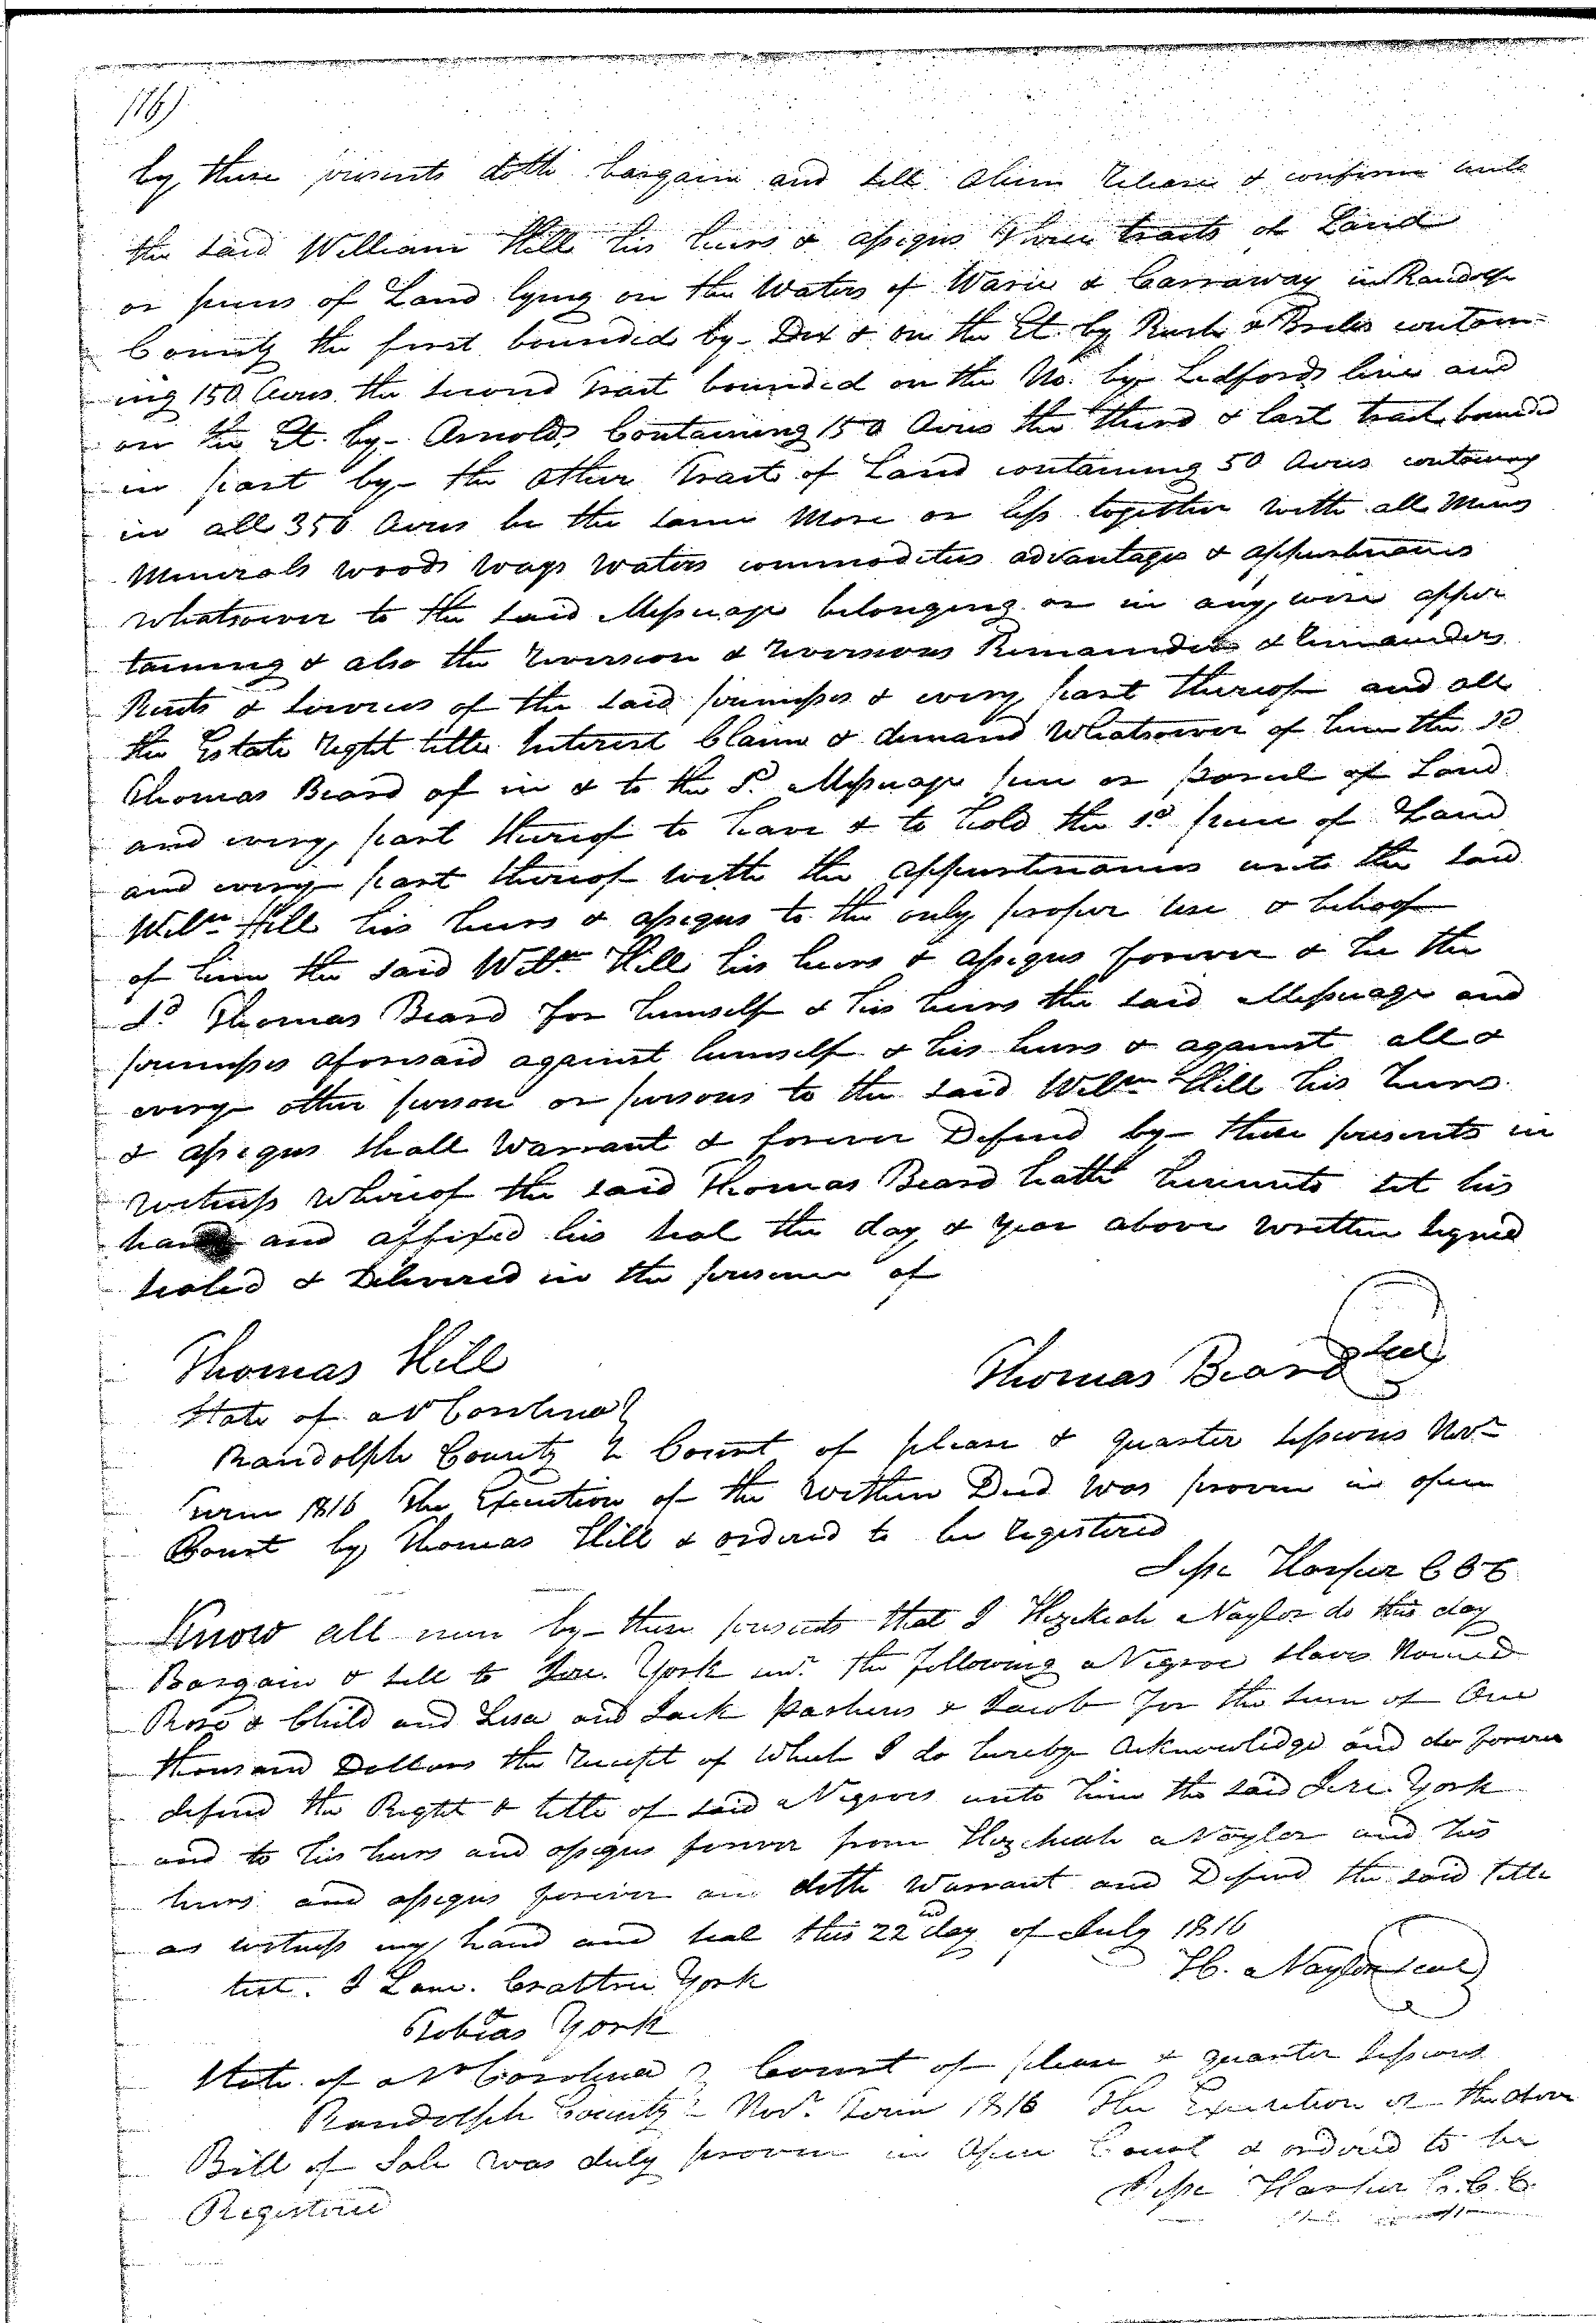 116)
by these presents doth bargain and sell alien Release & confirm unto
the said William Hill his heirs & assigns three tracts of Land
or peices of Land lying on the Waters of Warie & Carraway in Randolph
County the first bounded by Dix & on the Et. by Rush & Briles contain-
ing 150 Acres the second Tract bounded on the No. by Ledfords line and
on the Et. by Arnolds Containing 150 Acres the third & last tract bounded
in part by the other Tracts of Land containing 50 Acres containing
in all 350 Acres be the same More or less together with all Mines
Minerals woods ways waters commodities advantages & appurtenances
whatsoever to the said Messuage belonging or in any wise apper
taining & also the reversion & reversions Remainder & remainders
Rents & services of the said premisses & every part thereof and all
the Estate Right title Interest Claim & demand Whatsoever of him the sd
Thomas Beard of in & to the Sd Messuage peice or parcel of Land
and every part thereof to have & to hold the sd peice of Land
and every part thereof with the appurtenances unto the said
Willm Hill his heirs & assigns to the only proper use & behoof
of him the said Willm Hill his heirs & assigns forever & he the
sd Thomas Beard for himself & his heirs the said Messuage and
premisses aforesaid against himself & his heirs & against all &
every other person or persons to the said Willm Hill his heirs
& assigns shall Warrant & forever Defend by these presents in
witness whereof the said Thomas Beard hath hereunto set his
hand and affixed his seal the day & year above written signed
sealed & Delivered in the presence of
Thomas Hill Thomas Beard Seal
State of N Carolina }
Randolph County } Court of please & quarter sessions Novr
Term 1816 The Execution of the within Deed was proven in open
Court by Thomas Hill & ordered to be registered
Jesse Harper CCC
Know all men by these presents that I Hezekiah Naylor do this day
Bargain & sell to Jere. York senr. the following Negroe slaves Named
Rose & Child and Lisa and Jack & Jacob for the sum of One
thousand Dollars the receipt of which I do hereby Acknowledge and do forever
defend the Right & title of said Negroes unto him the said Jere. York
and to his heirs and assigns forever from Hezekiah Naylor and his
heirs and assigns forever and doth Warrant and Defend the said title
as witness my hand and seal this 22nd day of July 1816
test. J Lane. York H. Naylor seal
Tobias York
State of N Carolina } Court of please & quarter sessions
Randolph County } Novr. Term 1816 The Execution of the above
Bill of Sale was duly proven in Open Court & ordered to be
Registered Jesse Harper C.C.C.